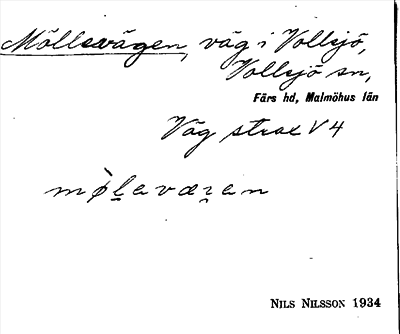 Möllevägen, väg i Vollsjö,
Vollsjö sn,
Färs hd, Malmöhus län
Väg strax V 4
NILS NILSSON 1934